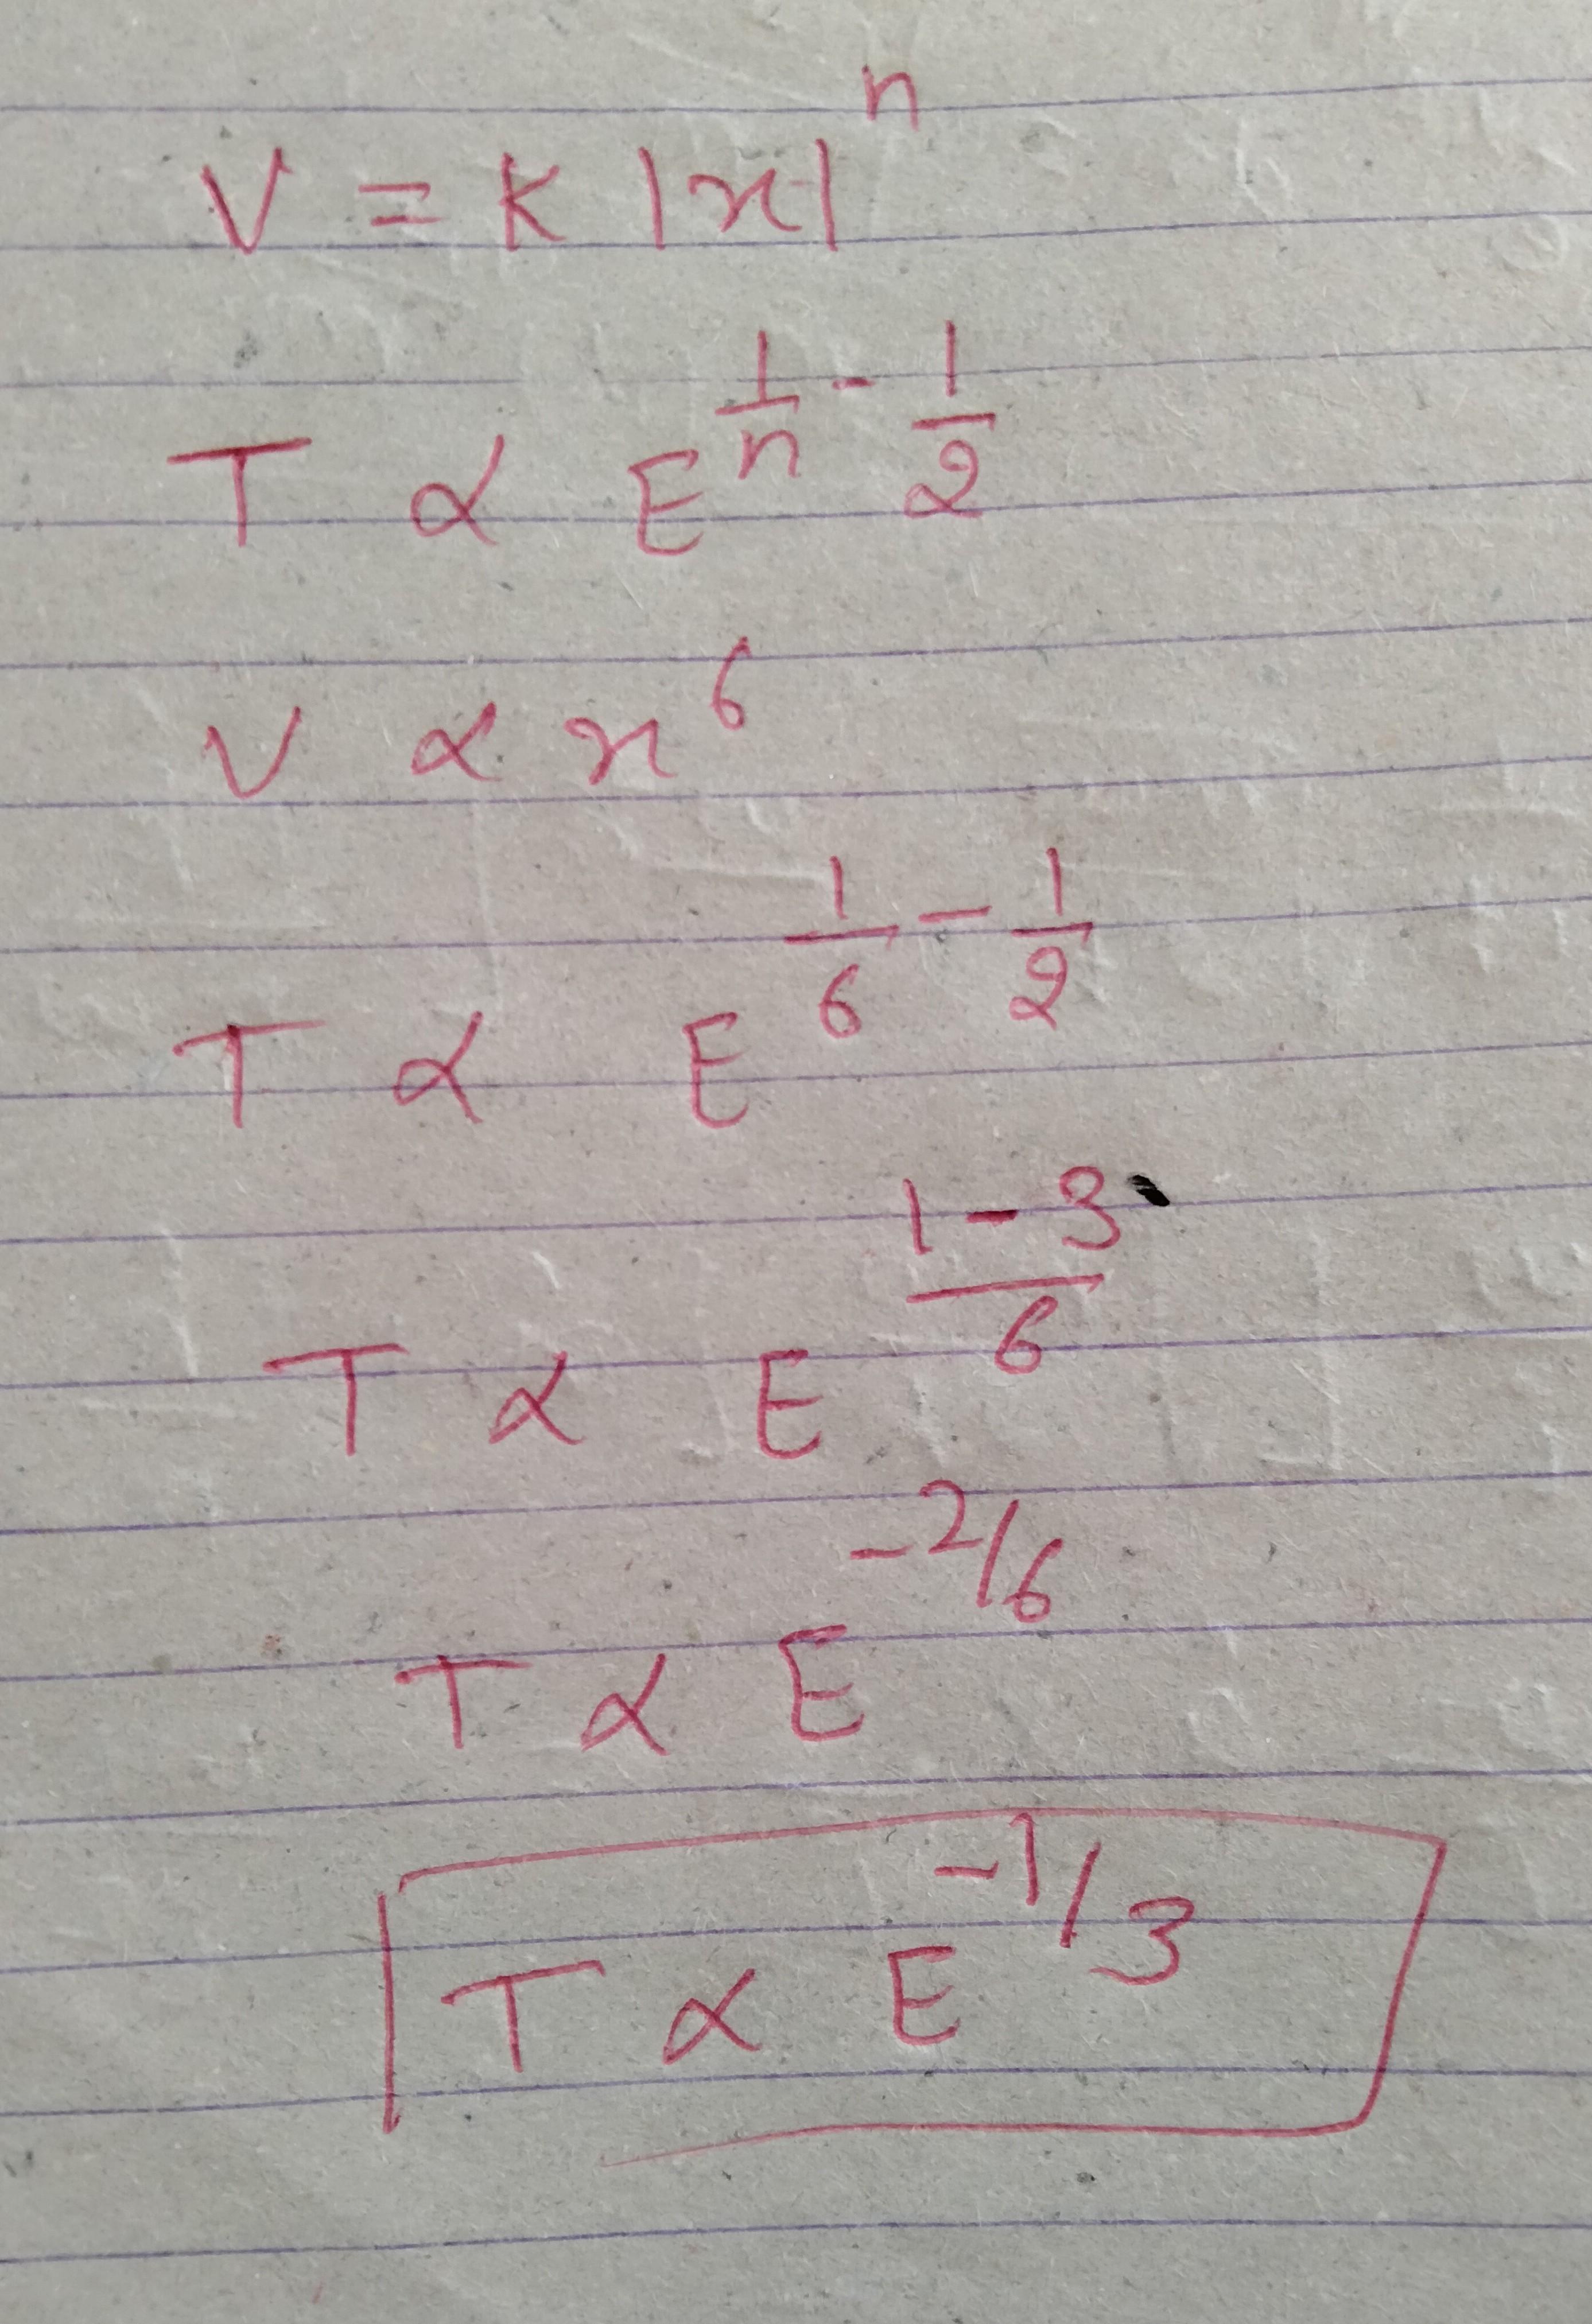 V = K |x|^n
T ∝ E^{1/n - 1/2}
V ∝ x^6
T ∝ E^{1/6 - 1/2}
T ∝ E^{(1-3)/6}
T ∝ E^{-2/6}
T ∝ E^{-1/3}